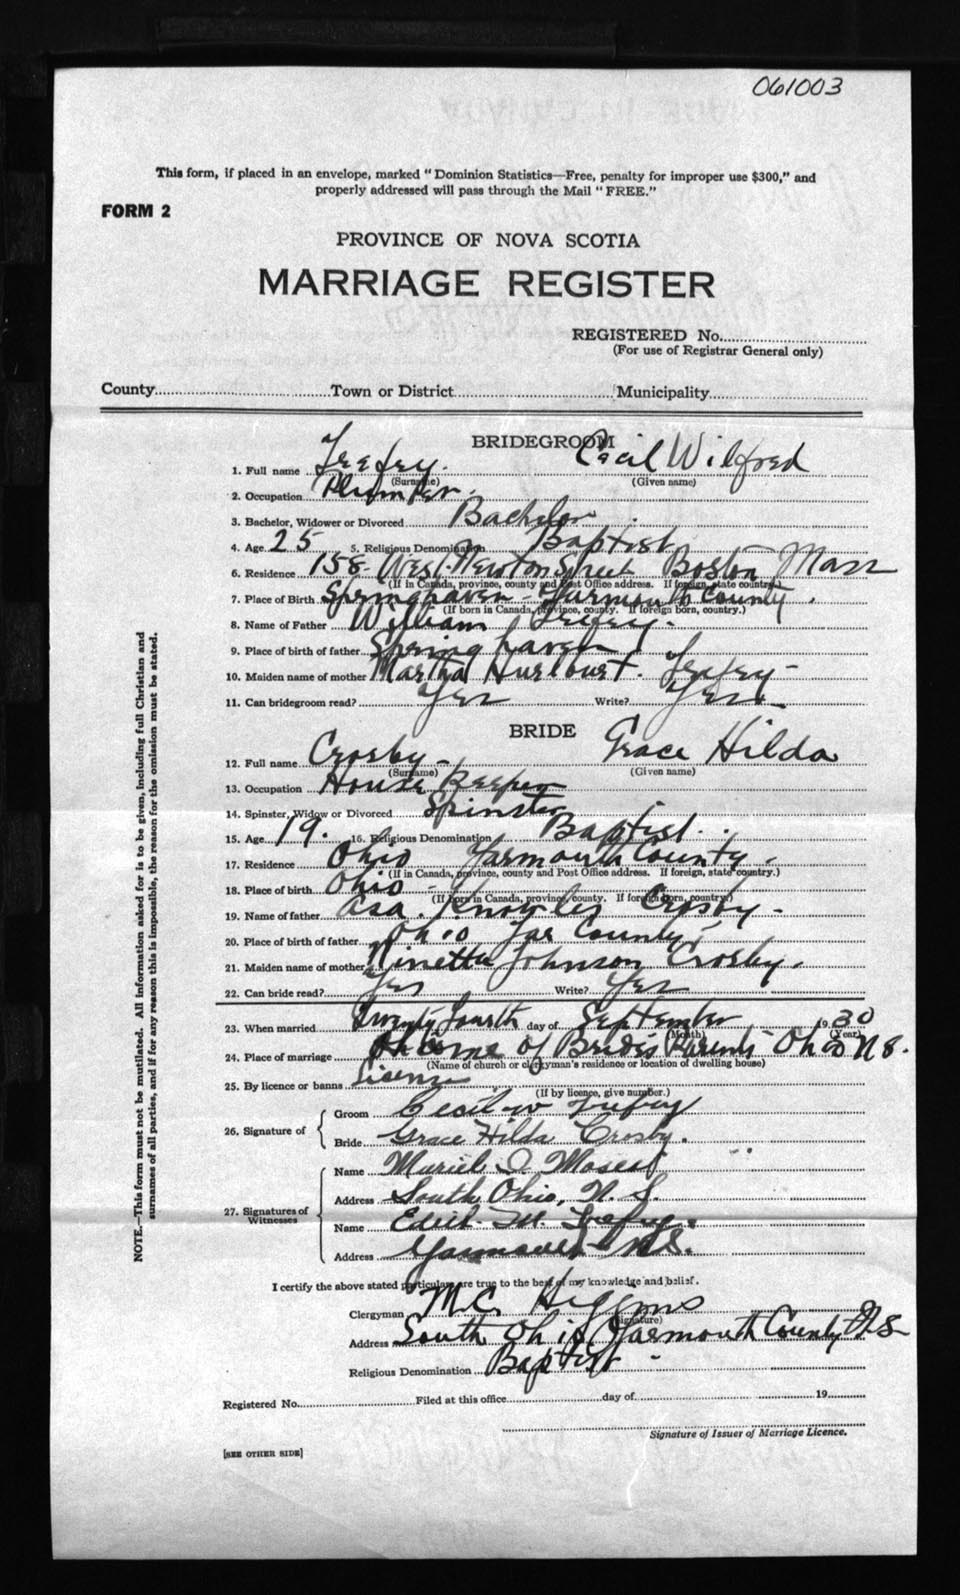 061003
This form, if placed in an envelope, marked "Dominion Statistics—Free, penalty for improper use $300," and
properly addressed will pass through the Mail "FREE."
FORM 2
PROVINCE OF NOVA SCOTIA
MARRIAGE REGISTER
REGISTERED No.
(For use of Registrar General only)
County Town or District Municipality
BRIDEGROOM
1. Full name Trefry. Cecil Wilfred
(Surname) (Given name)
2. Occupation Plumber.
3. Bachelor, Widower or Divorced Bachelor.
4. Age 25 5. Religious Denomination Baptist
6. Residence 158 West Newton Street Boston Mass
(If in Canada, province, county and Post Office address. If foreign, state country.)
7. Place of Birth Springhaven - Yarmouth County.
(If born in Canada, province, county. If foreign born, country.)
8. Name of Father William Trefry.
9. Place of birth of father Spring haven
10. Maiden name of mother Martha Hurlburt. Trefry
11. Can bridegroom read? Yes Write? Yes
BRIDE
12. Full name Crosby Grace Hilda
(Surname) (Given name)
13. Occupation House Keeper
14. Spinster, Widow or Divorced Spinster
15. Age 19. 16. Religious Denomination Baptist.
17. Residence Ohio Yarmouth County.
(If in Canada, province, county and Post Office address. If foreign, state country.)
18. Place of birth Ohio -
(If born in Canada, province, county. If foreign born, country.)
19. Name of father Asa. Knowles Crosby -
20. Place of birth of father Ohio Yar County
21. Maiden name of mother Ninetta Johnson Crosby.
22. Can bride read? Yes Write? Yes
23. When married Twenty fourth day of September 1930
(Month) (Year)
24. Place of marriage Home of Brides Parents Ohio N S.
(Name of church or clergyman's residence or location of dwelling house)
25. By licence or banns License
(If by licence, give number.)
26. Signature of Groom Cecil W Trefry
Bride Grace Hilda Crosby.
27. Signatures of Witnesses Name Muriel I. Moses
Address South Ohio, N. S.
Name Edith M. Trefry.
Address Yarmouth N.S.
I certify the above stated particulars are true to the best of my knowledge and belief.
Clergyman M.C. Higgins
(Signature)
Address South Ohio, Yarmouth County N.S
Religious Denomination Baptist -
Registered No. Filed at this office day of 19
Signature of Issuer of Marriage Licence.
[SEE OTHER SIDE]
NOTE.—This form must not be mutilated. All information asked for is to be given, including full Christian and
surnames of all parties, and if for any reason this is impossible, the reason for the omission must be stated.